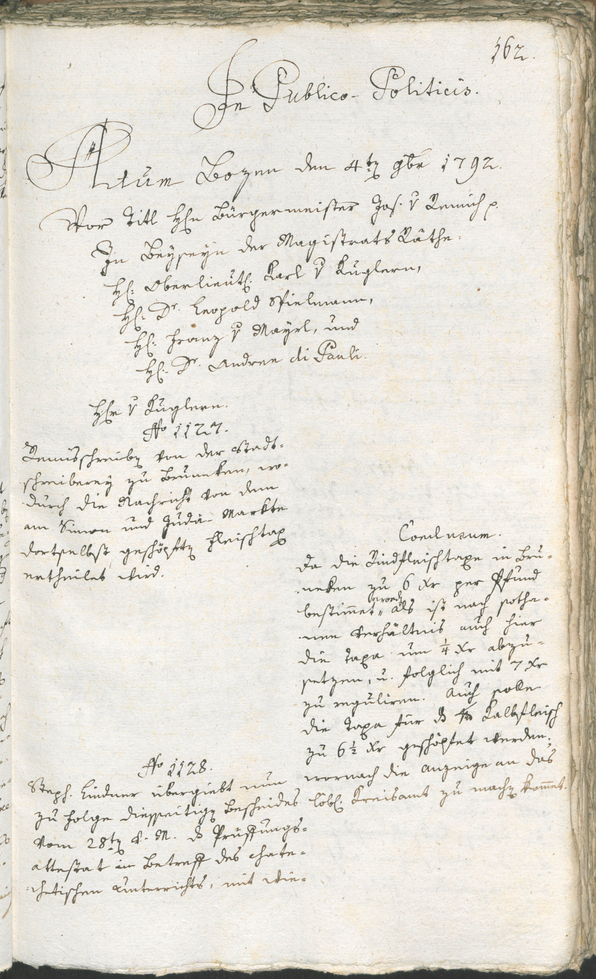 162.
In Publico-Politicis.
Actum Bozen den 4ten 9br 1792.
Vor Titl Hhn Bürgermeister Jos. v Remich p
In Beyseyn der Magistrats Räthe.
Hh: Oberlieut: Karl v Kuglern,
Hh: Dr. Leopold Spielmann,
Hh: Franz v Mayrl, und
Hh: Dr. Andree di Pauli.
Hhr v Kuglern.
No 1127.
Remisschreiben von der Stadt-
schreiberey zu Bruneken, wo-
durch die Nachricht von dem
am Simon und Judä Markte
dortselbst geschöpften Fleischtax
ertheilet wird.
Conclusum.
Da die Rindfleischtaxe in Bru-
neken zu 6 Xr per Pfund
bestimmet worden, als ist nach sothe-
nen Verhältnis auch hier
die Taxa um 1/4 Xr abzu-
setzen, u. folglich mit 7 Xr
zu reguliren. Auch solle
die Taxa für d Kalbfleisch
zu 6 1/2 Xr geschöpfet werden;
wornach die Anzeige an das
löbl. Kreisamt zu machen kommet.
No 1128.
Steph. Lindner übergiebt nun
zu Folge diesseitigen Bescheides
vom 28ten v. M. d Prüffungs-
attestat in Betreff des chate-
chetischen Unterrichts, mit wie-